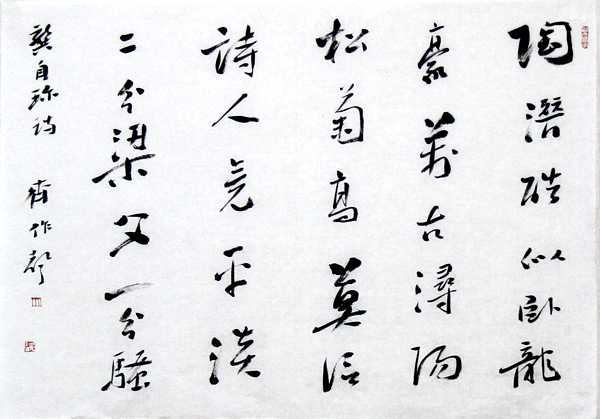 陶潛酷似卧龍
豪萬古潯陽
松菊高莫信
詩人竟平淡
二分梁父一分騷
龔自珍詩 齊作聲